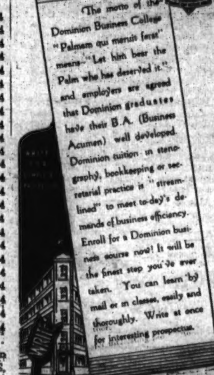 The motto of the
Dominion Business College
"Palmam qui meruit ferat"
means—"Let him bear the
Palm who has deserved it."
and employers are agreed
that Dominion graduates
have their B.A. (Business
Acumen) well developed.
Dominion tuition in steno-
graphy, bookkeeping or sec-
retarial practice is "stream-
lined" to meet to-day's de-
mands of business efficiency.
Enroll for a Dominion busi-
ness course now! It will be
the finest step you've ever
taken. You can learn by
mail or in classes, easily and
thoroughly. Write at once
for interesting prospectus.